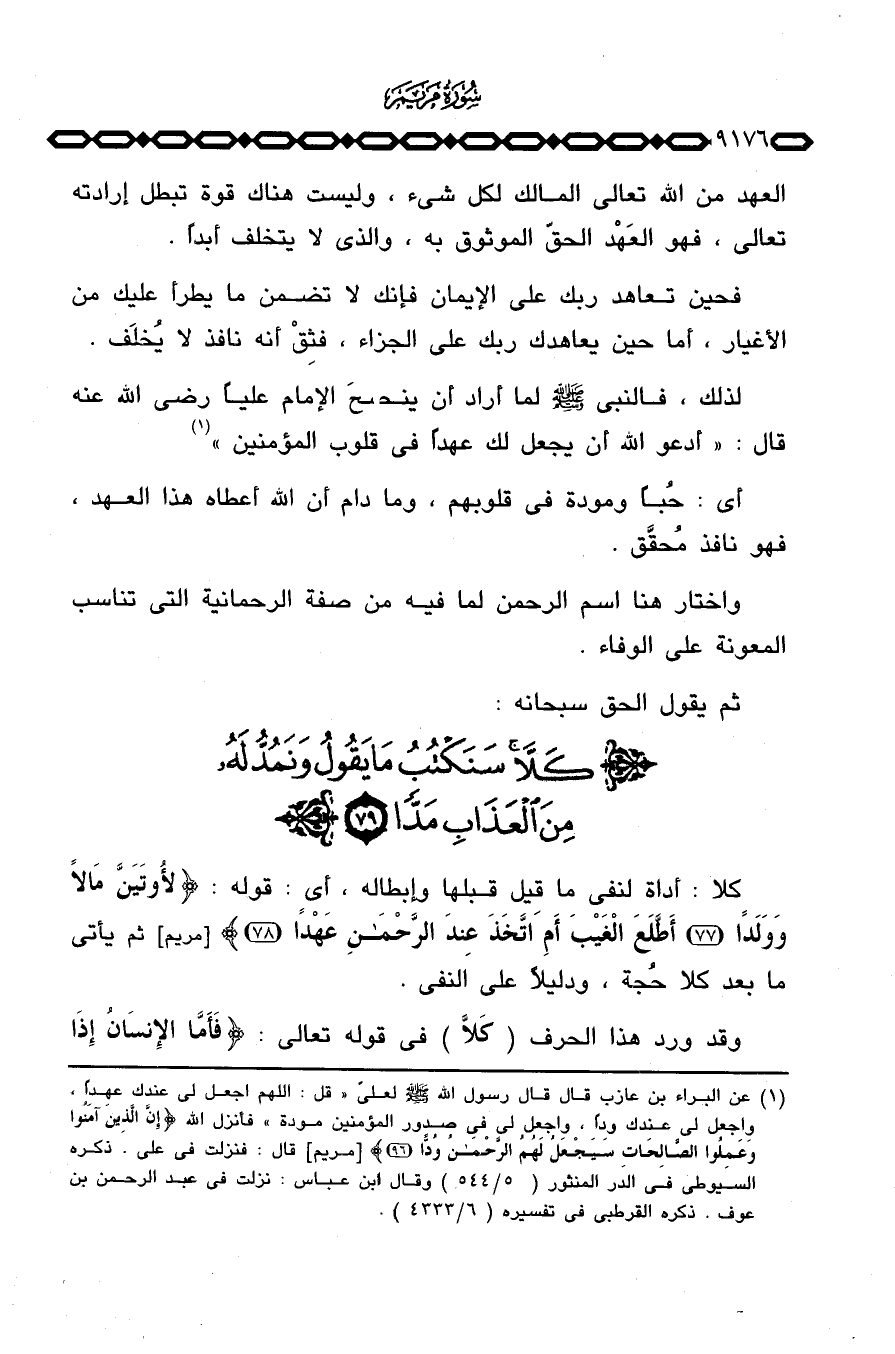 سورة مريم
٩١٧٦
العهد من الله تعالى المالك لكل شىء ، وليست هناك قوة تبطل إرادته
تعالى ، فهو العَهْد الحقّ الموثوق به ، والذى لا يتخلف أبداً .
فحين تعاهد ربك على الإيمان فإنك لا تضمن ما يطرأ عليك من
الأغيار ، أما حين يعاهدك ربك على الجزاء ، فثِقْ أنه نافذ لا يُخلَف .
لذلك ، فالنبى ﷺ لما أراد أن ينصحَ الإمام علياً رضى الله عنه
قال : « أدعو الله أن يجعل لك عهداً فى قلوب المؤمنين »(١)
أى : حُباً ومودة فى قلوبهم ، وما دام أن الله أعطاه هذا العهد ،
فهو نافذ مُحقَّق .
واختار هنا اسم الرحمن لما فيه من صفة الرحمانية التى تناسب
المعونة على الوفاء .
ثم يقول الحق سبحانه :
كَلَّا ۚ سَنَكْتُبُ مَا يَقُولُ وَنَمُدُّ لَهُۥ
مِنَ ٱلْعَذَابِ مَدًّا ٧٩
كلا : أداة لنفى ما قيل قبلها وإبطاله ، أى : قوله : ﴿ لأُوتَيَنَّ مَالاً
وَوَلَدًا (٧٧) أَطَّلَعَ الْغَيْبَ أَمِ اتَّخَذَ عِندَ الرَّحْمَـٰنِ عَهْدًا (٧٨) ﴾ [مريم] ثم يأتى
ما بعد كلا حُجة ، ودليلاً على النفى .
وقد ورد هذا الحرف ( كَلاَّ ) فى قوله تعالى : ﴿ فَأَمَّا الإِنسَانُ إِذَا
(١) عن البراء بن عازب قال قال رسول الله ﷺ لعلىّ « قل : اللهم اجعل لى عندك عهداً ،
واجعل لى عندك وداً ، واجعل لى فى صدور المؤمنين مودة » فأنزل الله ﴿ إِنَّ الَّذِينَ آمَنُوا
وَعَمِلُوا الصَّالِحَاتِ سَيَجْعَلُ لَهُمُ الرَّحْمَـٰنُ وُدًّا (٩٦) ﴾ [مريم] قال : فنزلت فى على . ذكره
السيوطى فى الدر المنثور ( ٥٤٤/٥ ) وقال ابن عباس : نزلت فى عبد الرحمن بن
عوف . ذكره القرطبى فى تفسيره ( ٤٣٣٣/٦ ) .